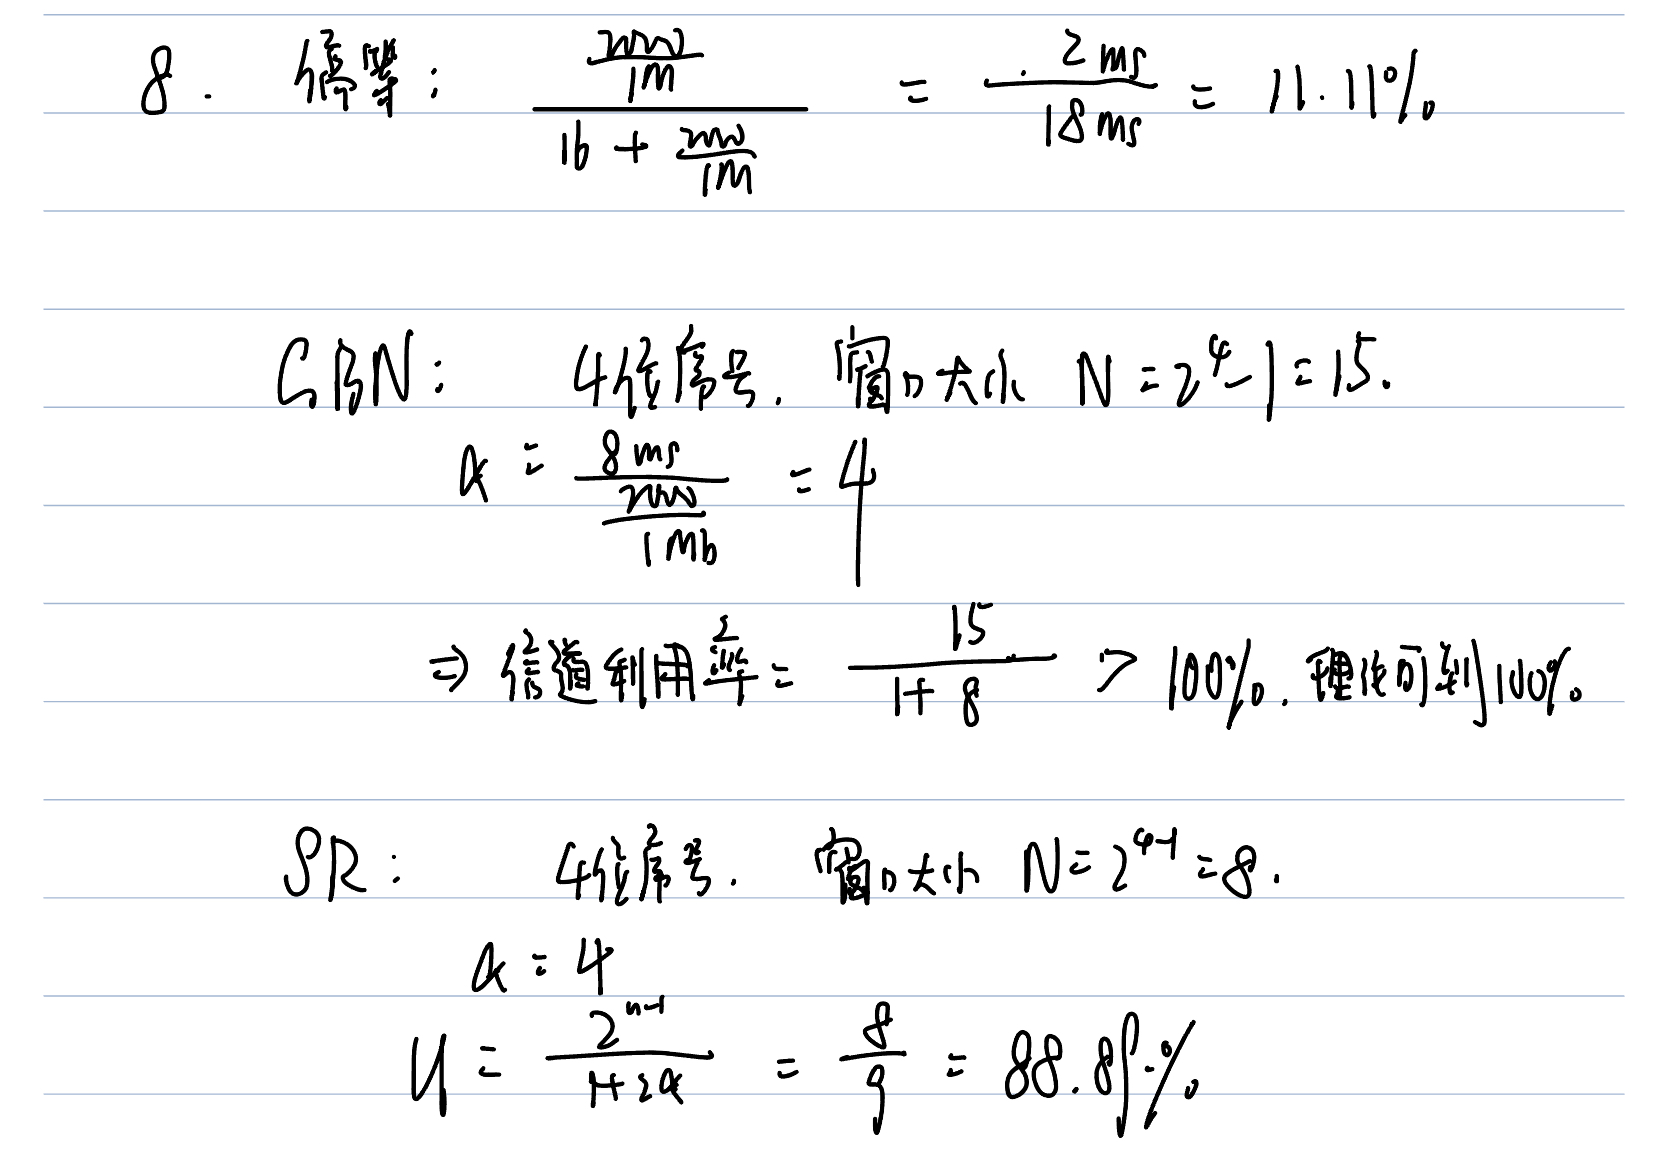 8. 停等: \frac{\frac{2000}{1M}}{16 + \frac{2000}{1M}} = \frac{2ms}{18ms} = 11.11%
GBN: 4位序号. 窗口大小 N = 2^4 - 1 = 15.
a = \frac{8ms}{\frac{2000}{1Mb}} = 4
⇒ 信道利用率 = \frac{15}{1+8} > 100%. 理论可到100%.
SR: 4位序号. 窗口大小 N = 2^{4-1} = 8.
a = 4
U = \frac{2^{n-1}}{1+2a} = \frac{8}{9} = 88.89%